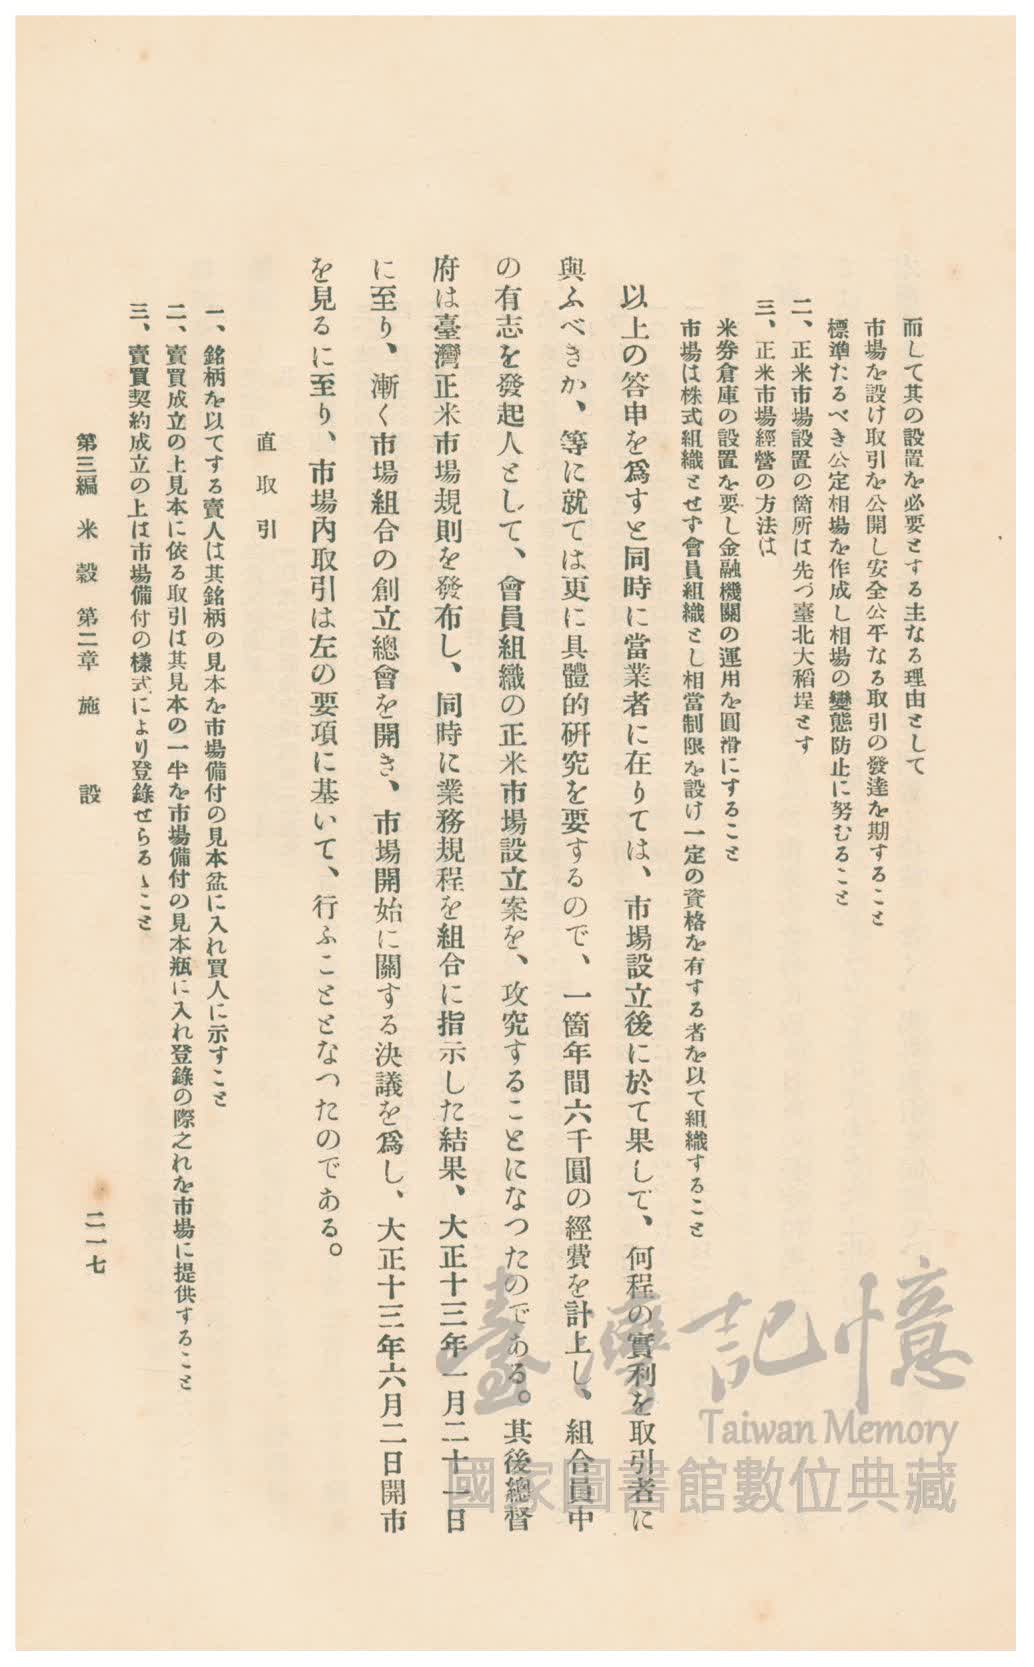 而して其の設置を必要とする主なる理由として
市場を設け取引を公開し安全公平なる取引の發達を期すること
標準たるべき公定相場を作成し相場の變態防止に努むること
二、正米市場設置の箇所は先づ臺北大稻埕とす
三、正米市場經營の方法は
米券倉庫の設置を要し金融機關の運用を圓滑にすること
市場は株式組織とせず會員組織とし相當制限を設け一定の資格を有する者を以て組織すること
以上の答申を爲すと同時に當業者に在りては、市場設立後に於て果して、何程の實利を取引者に
與ふべきか、等に就ては更に具體的硏究を要するので、一箇年間六千圓の經費を計上し、組合員中
の有志を發起人として、會員組織の正米市場設立案を、攻究することになつたのである。其後總督
府は臺灣正米市場規則を發布し、同時に業務規程を組合に指示した結果、大正十三年一月二十一日
に至り、漸く市場組合の創立總會を開き、市場開始に關する決議を爲し、大正十三年六月二日開市
を見るに至り、市場內取引は左の要項に基いて、行ふこととなつたのである。
直取引
一、銘柄を以てする賣人は其銘柄の見本を市場備付の見本盆に入れ買人に示すこと
二、賣買成立の上見本に依る取引は其見本の一半を市場備付の見本瓶に入れ登錄の際之れを市場に提供すること
三、賣買契約成立の上は市場備付の樣式により登錄せらるゝこと
第三編 米穀 第二章 施設
二一七
臺灣記憶
Taiwan Memory
國家圖書館數位典藏